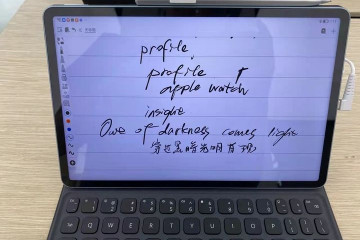 profile
profile
apple watch
insight
Out of darkness comes light
穿过黑暗光明自现
Q W E R T Y U I O P